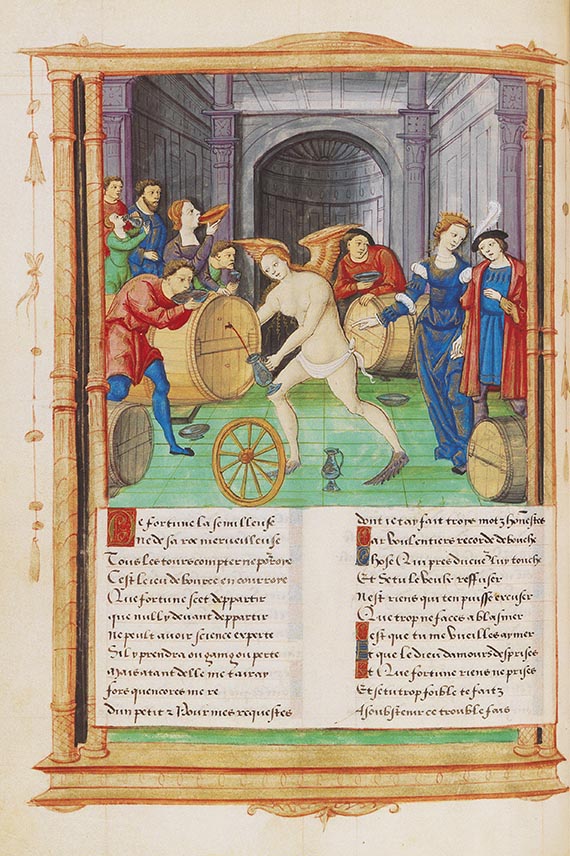 De fortune la semilleuse
ne de sa roe merveilleuse
Tous les tours compter ne porroye
Cest le ieu de en courroye
Que fortune scet deppartir
que nully devant deppartir
ne peult avoir science experte
Sil y prendra ou gaing ou perte
Mais atant delle me tairay
fors quencores me re
dun petit z Pour mes requestes
dont ie tay fait troys motz honestes
Car voulentiers recorde bouche
Chose Qui pres du cueur luy touche
Et se tu le veulx reffuser
Nest riens qui ten puisse excuser
Que trop ne faces a blasmer
Cest que tu me vueilles aymer
Et que le dieu damours desprises
Et Que fortune riens ne prises
Et se tu trop foible te faitz
A soubstenir ce trouble fais